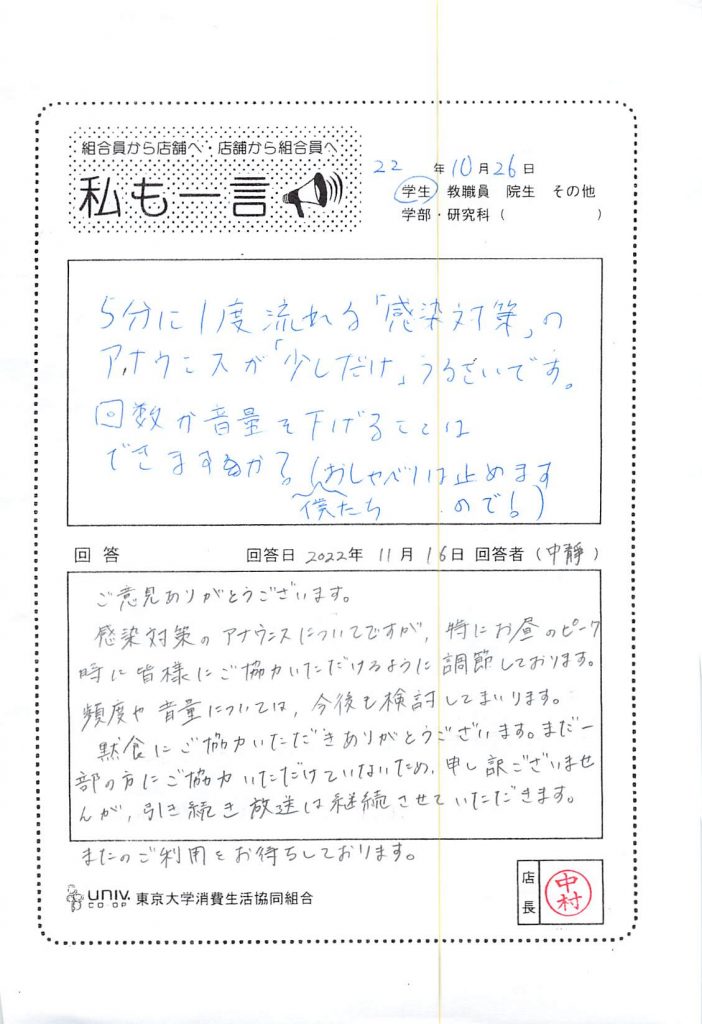 組合員から店舗へ・店舗から組合員へ
私も一言
22年10月26日
学生 教職員 院生 その他
学部・研究科( )
5分に1度流れる「感染対策」の
アナウンスが「少しだけ」うるさいです。
回数か音量を下げることは
できますか?(おしゃべりは止めます
僕たち ので!)
回答 回答日 2022年 11月 16日 回答者(中靜)
ご意見ありがとうございます。
感染対策のアナウンスについてですが、特にお昼のピーク
時に皆様にご協力いただけるように調節しております。
頻度や音量については、今後も検討してまいります。
黙食にご協力いただきありがとうございます。まだ一
部の方にご協力いただけていないため、申し訳ございませ
んが、引き続き放送は継続させていただきます。
またのご利用をお待ちしております。
UNIV. CO-OP 東京大学消費生活協同組合
店長 中村